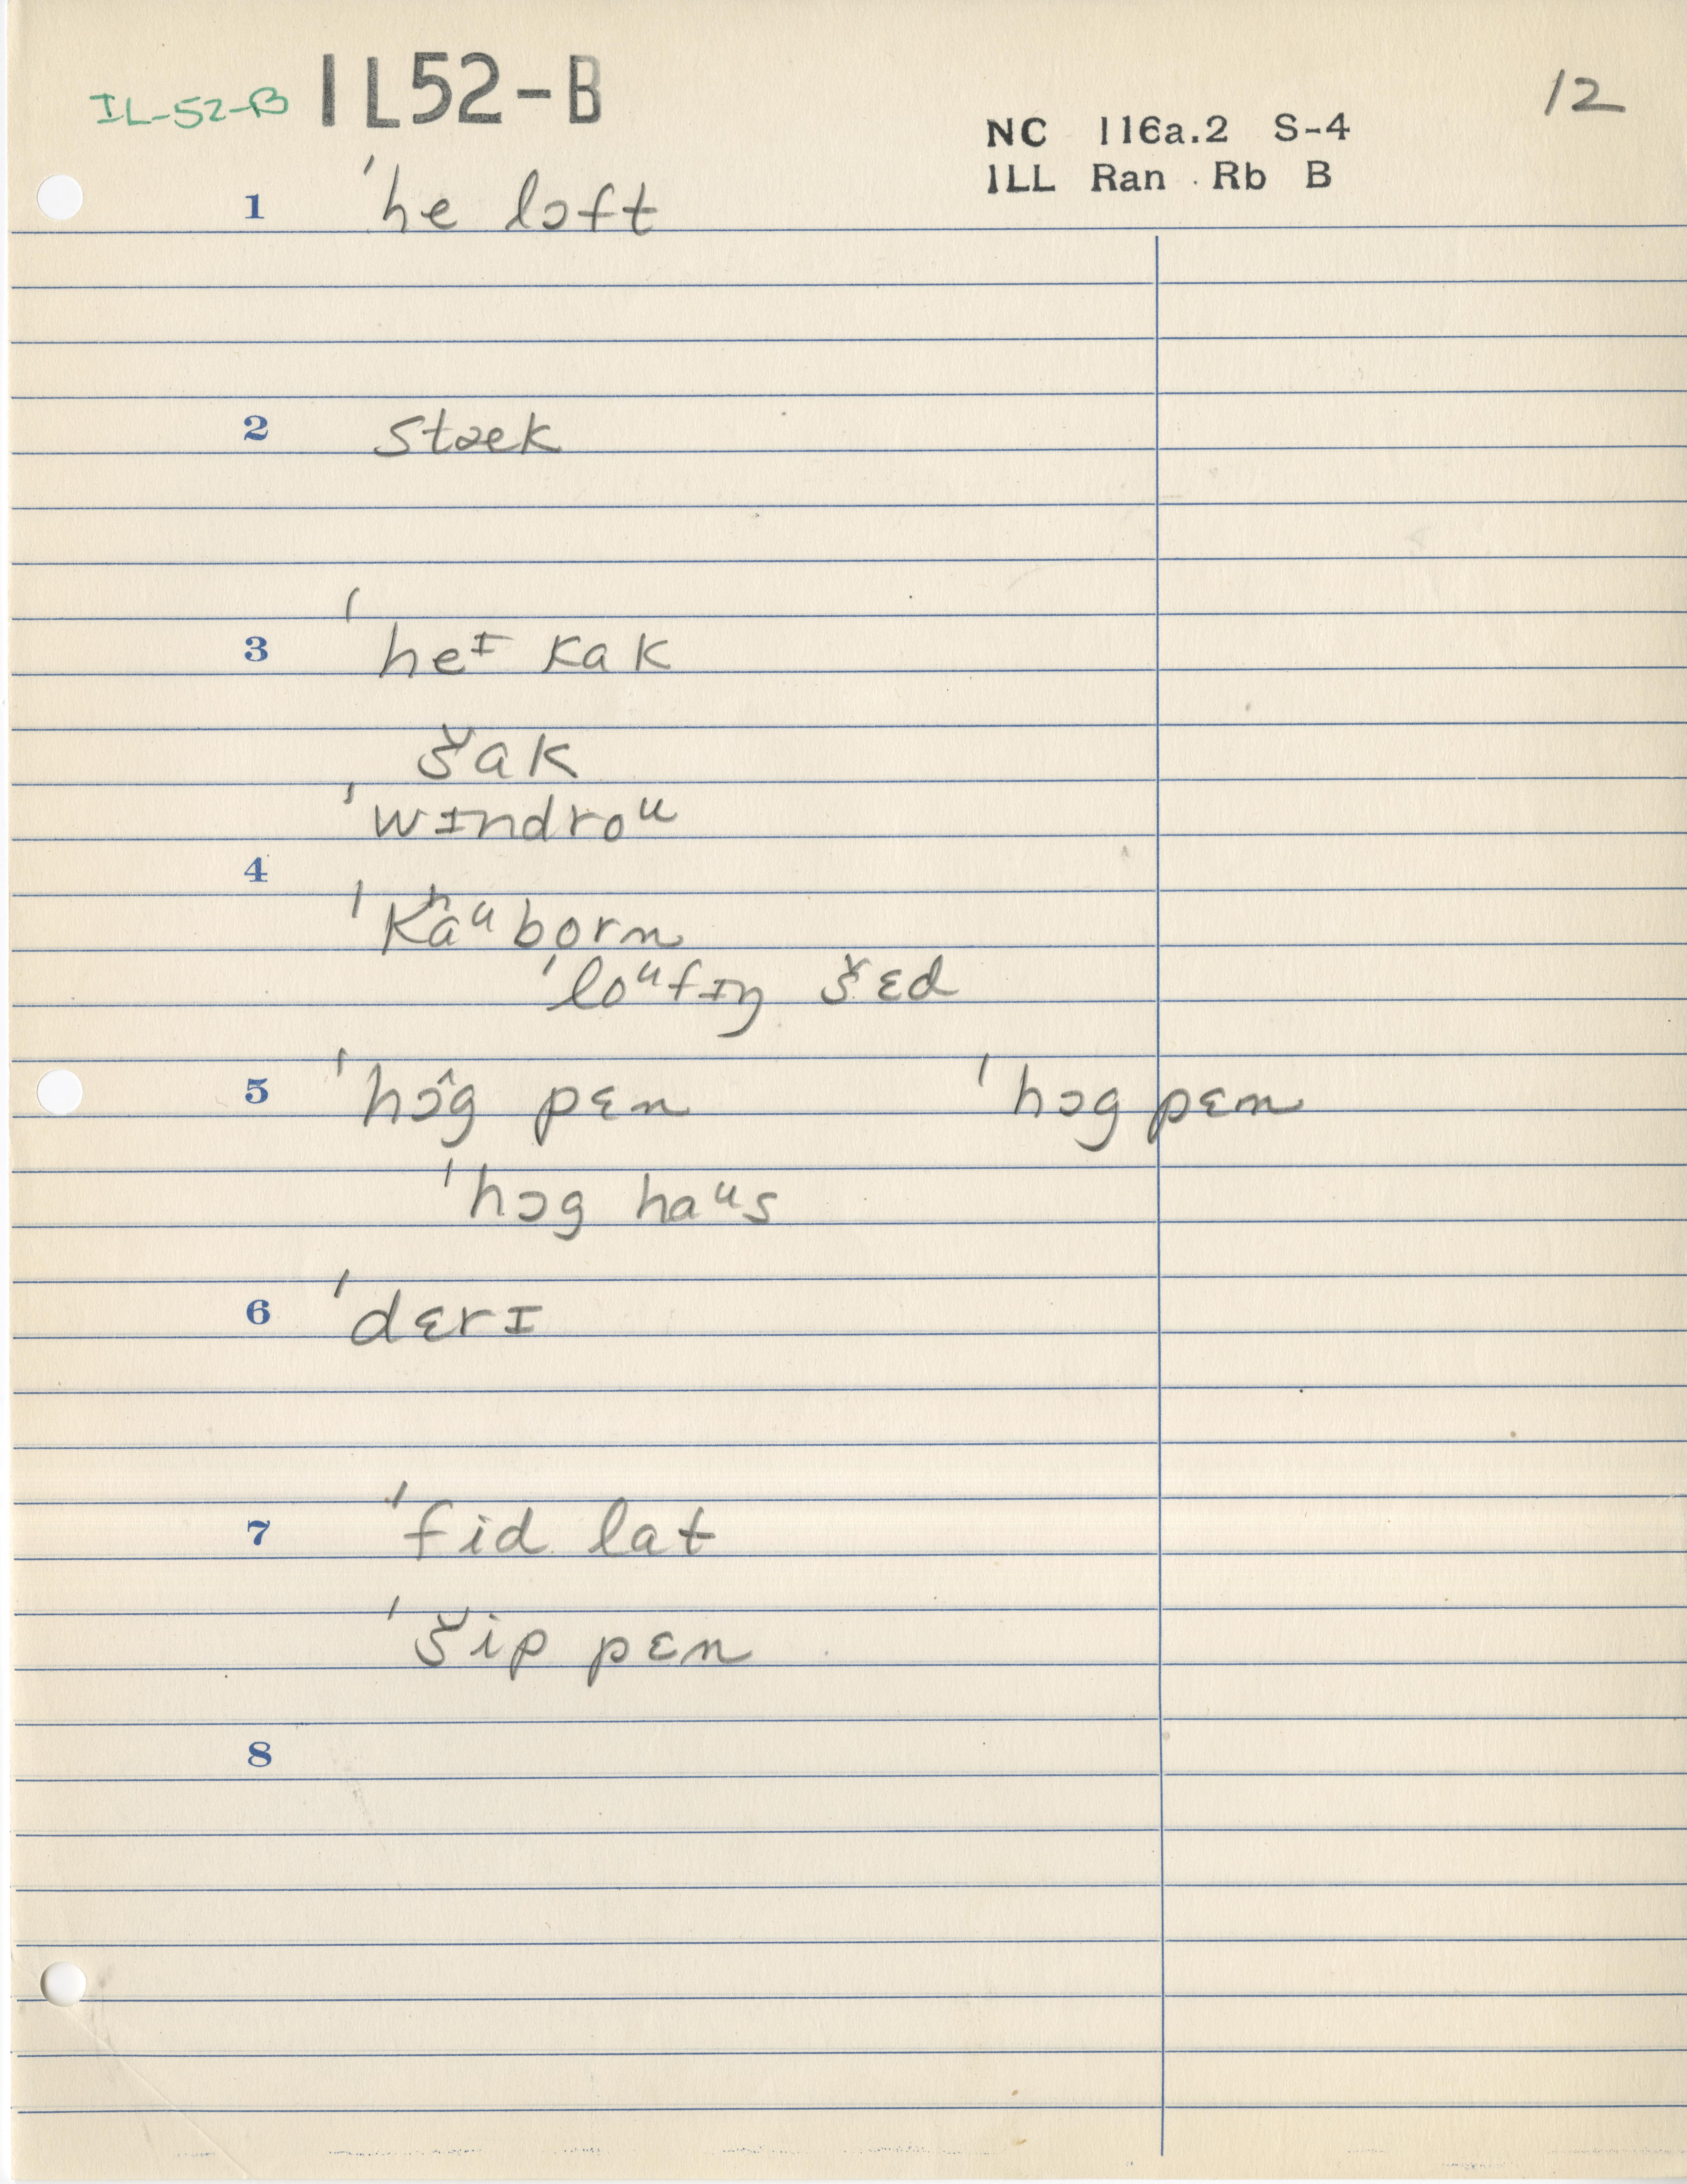 IL-52-B IL52-B 12
NC 116a.2 S-4
ILL Ran . Rb B
1 ˈhe lɔft
2 stæk
3 ˈheᶦ kak
šak
ˈwɪndroᵘ
4
ˈkʰaᵘ born
ˈloᵘfɪŋ šɛd
5 ˈhɔ̂g pɛn ˈhɔg pɛn
ˈhɔg haᵘs
6 ˈdɛrɪ
7 ˈfid lat
ˈšip pɛn
8